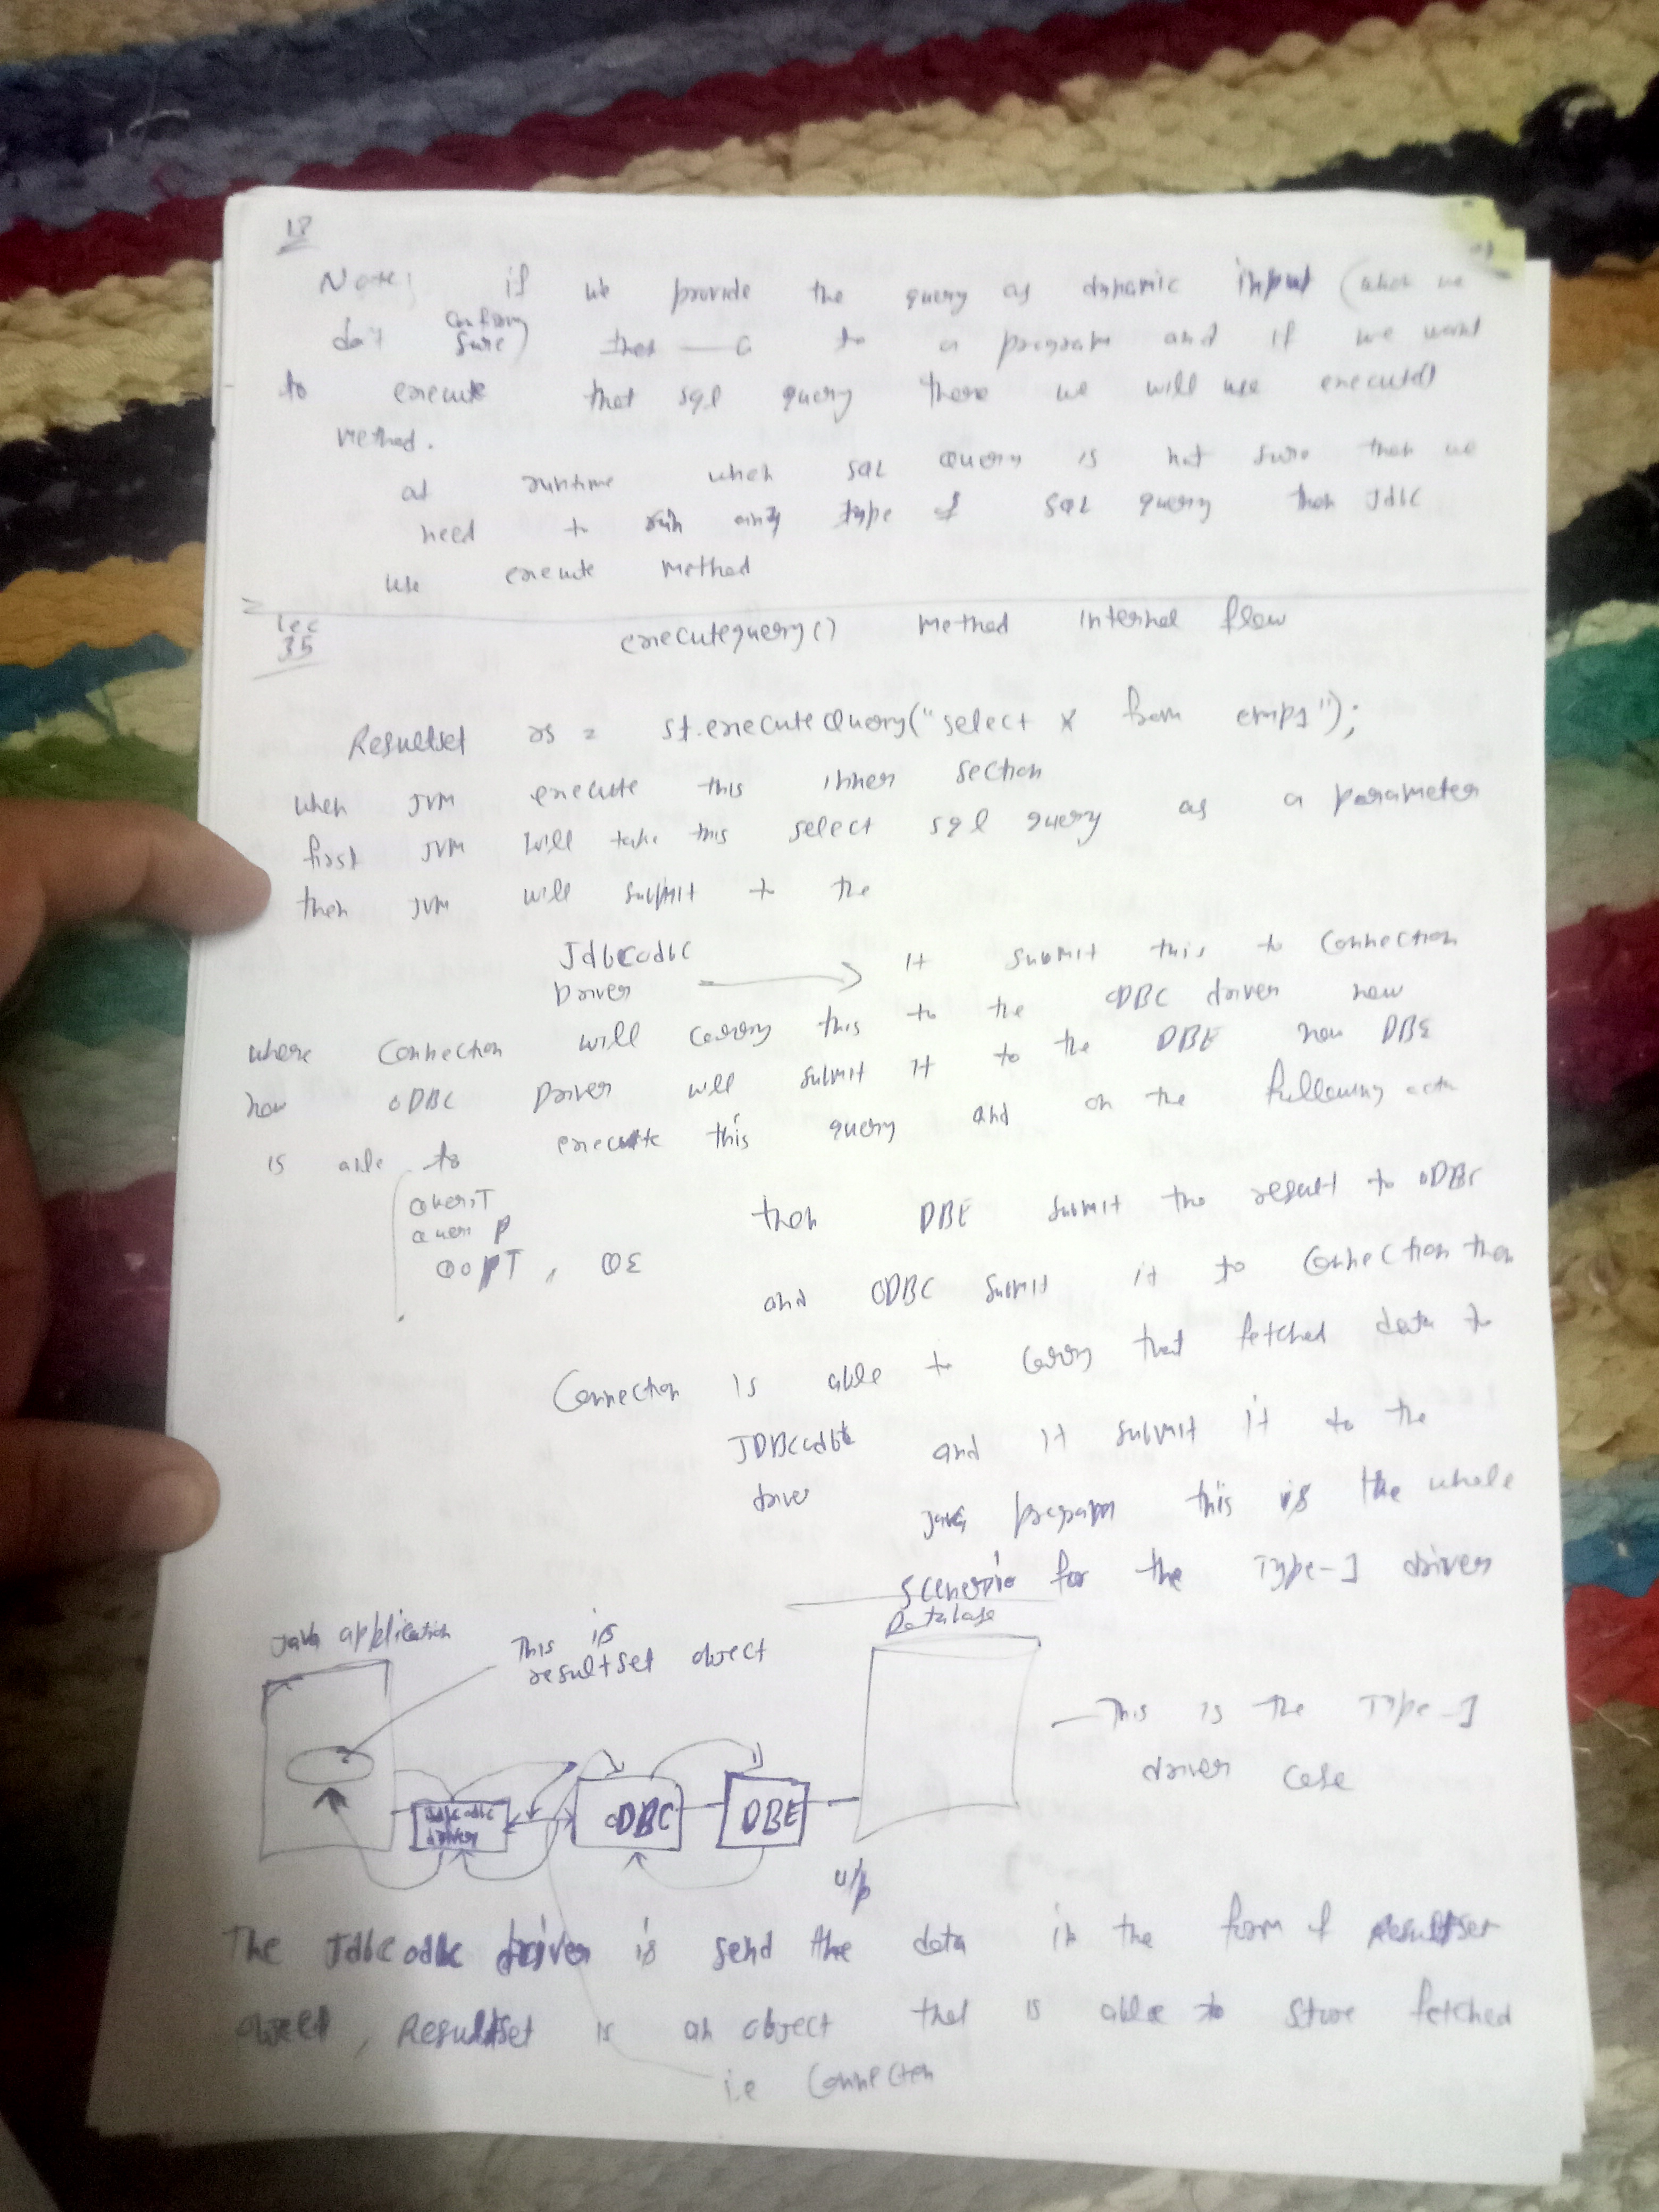 18
Note; if we provide the query as dynamic input (when we
don't confirm
sure) then to a program and if we want
to execute that sql query there we will use execute()
method.
at runtime when SQL Query is not sure then we
need to run any type of SQL query then Jdbc
use execute method
Lec
35
executequery() Method internal flow
Resultset rs = st.executeQuery("select * from emp1");
when JVM execute this inner section
first JVM will take this select sql query as a parameter
then JVM will submit to the
Jdbcodbc
Driver → It submit this to connection
where connection will carry this to the ODBC driver now
now ODBC Driver will submit it to the DBE now DBE
is able to execute this query and on the following
QuerT
Quer P
QOPT, QE
then DBE submit the result to ODBC
and ODBC submit it to Connection then
Connection is able to carry that fetched data to
JDBCodbc
driver
and it submit it to the
java program this is the whole
scenerio for the Type-1 driver
java application
This is
resultset object
Database
This is the Type-1
driver case
Jdbc odbc
driver
ODBC
DBE
The Jdbcodbc driver is send the data in the form of Resultset
object, Resultset is an object that is able to store fetched
i.e Connection